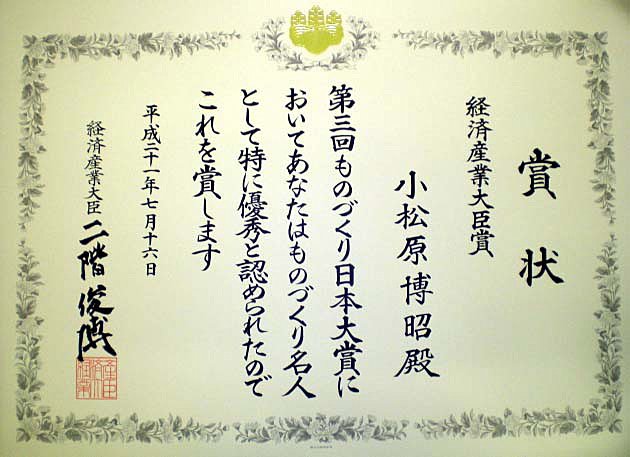 賞状
経済産業大臣賞
小松原博昭殿
第三回ものづくり日本大賞に
おいてあなたはものづくり名人
として特に優秀と認められたので
これを賞します
平成二十一年七月十六日
経済産業大臣 二階俊博